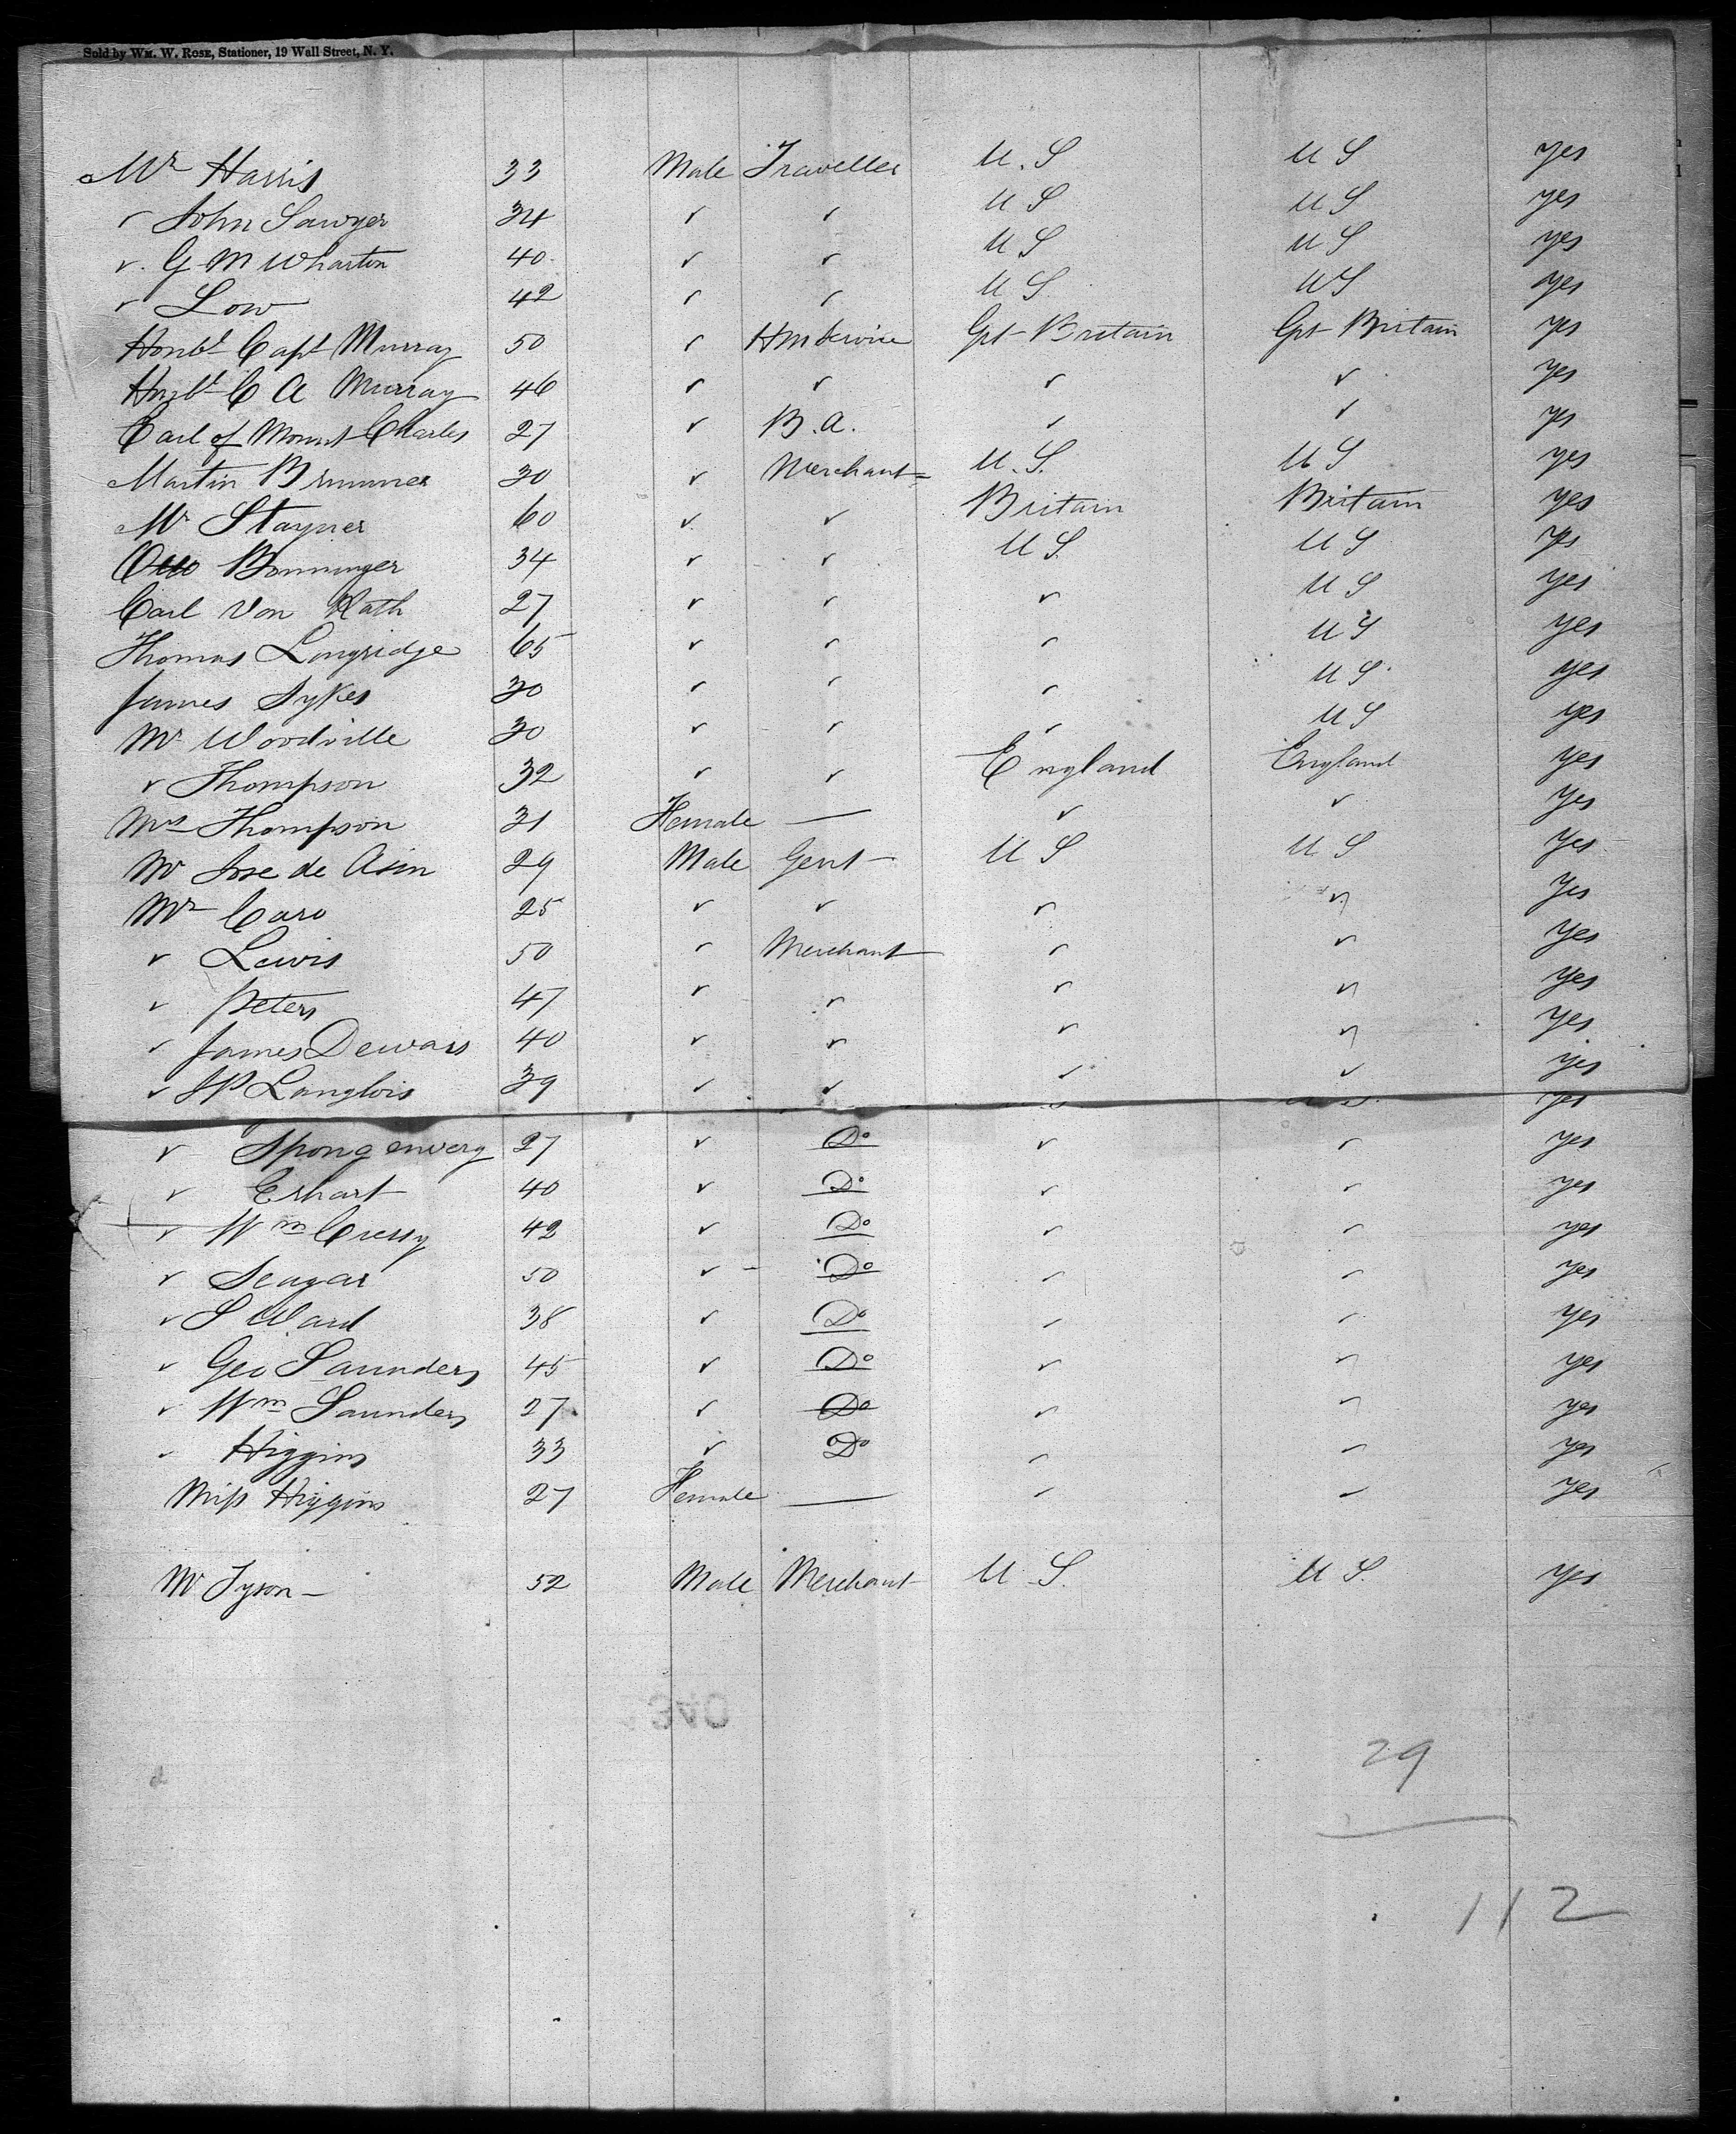 Sold by WM. W. ROSE, Stationer, 19 Wall Street, N. Y.
Mr Harris 33 Male Traveller U.S U S yes
✓ John Sawyer 34 ✓ ✓ U S U S yes
✓ G M Wharton 40 ✓ ✓ U S U S yes
✓ Low 42 ✓ ✓ U S U S yes
Honbl Capt Murray 50 ✓ HM Service Gt Britain Gt Britain yes
Honbl C A Murray 46 ✓ ✓ ✓ ✓ yes
Earl of Mount Charles 27 ✓ B.A. ✓ ✓ yes
Martin Brimmer 30 ✓ Merchant U.S. U S yes
Mr Stayner 60 ✓ ✓ Britain Britain yes
Otto Bonninger 34 ✓ ✓ U S. U S yes
Carl Von Rath 27 ✓ ✓ ✓ U S yes
Thomas Longridge 65 ✓ ✓ ✓ U S yes
James Sykes 30 ✓ ✓ ✓ U S yes
Mr Woodville 30 ✓ ✓ ✓ U S yes
✓ Thompson 32 ✓ ✓ England England yes
Mrs Thompson 31 Female — ✓ ✓ yes
Mr Jose de Asin 29 Male Gent U S U S yes
Mr Caro 25 ✓ ✓ ✓ ✓ yes
✓ Lewis 50 ✓ Merchant ✓ ✓ yes
✓ Peters 47 ✓ ✓ ✓ ✓ yes
✓ James Dewars 40 ✓ ✓ ✓ ✓ yes
✓ JP Langlois 39 ✓ ✓ ✓ ✓ yes
yes
✓ Spongenverg 27 ✓ Do ✓ ✓ yes
✓ Erhart 40 ✓ Do ✓ ✓ yes
✓ Wm Cressy 42 ✓ Do ✓ ✓ yes
✓ Seagar 50 ✓ Do ✓ ✓ yes
✓ S Ward 38 ✓ Do ✓ ✓ yes
✓ Geo Saunders 45 ✓ Do ✓ ✓ yes
✓ Wm Saunders 27 ✓ Do ✓ ✓ yes
✓ Higgins 33 ✓ Do ✓ ✓ yes
Miss Higgins 27 Female — ✓ ✓ yes
Mr Tyson 52 Male Merchant U S. U S. yes
340
29
112